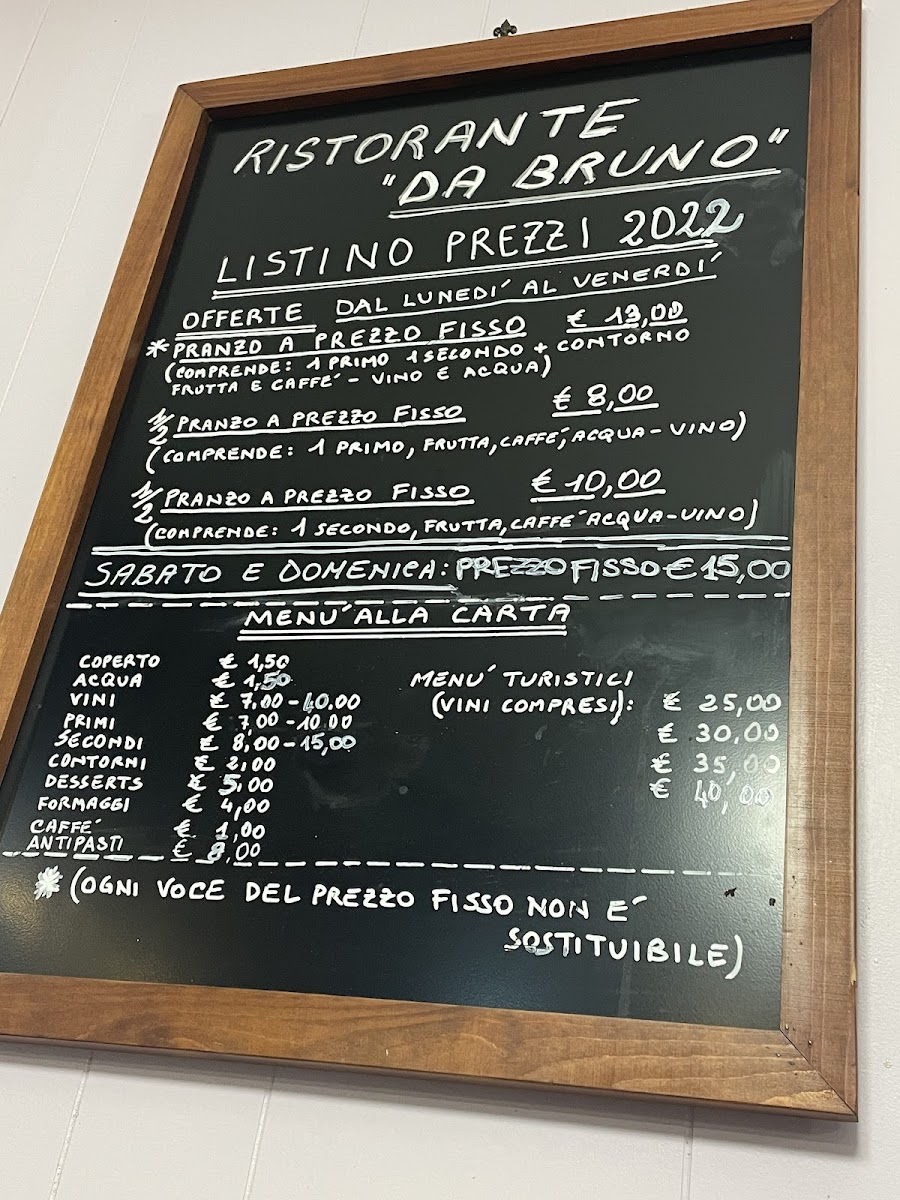 RISTORANTE
"DA BRUNO"
LISTINO PREZZI 2022
OFFERTE DAL LUNEDI´ AL VENERDI´
* PRANZO A PREZZO FISSO € 13,00
(COMPRENDE: 1 PRIMO 1 SECONDO + CONTORNO
FRUTTA E CAFFE´ - VINO E ACQUA)
1/2 PRANZO A PREZZO FISSO € 8,00
(COMPRENDE: 1 PRIMO, FRUTTA, CAFFE´, ACQUA - VINO)
1/2 PRANZO A PREZZO FISSO € 10,00
(COMPRENDE: 1 SECONDO, FRUTTA, CAFFE´ ACQUA-VINO)
SABATO E DOMENICA: PREZZO FISSO € 15,00
MENU´ ALLA CARTA
COPERTO € 1,50
ACQUA € 1,50
VINI € 7,00 - 40,00
PRIMI € 7,00 - 10,00
SECONDI € 8,00 - 15,00
CONTORNI € 2,00
DESSERTS € 5,00
FORMAGGI € 4,00
CAFFE´ € 1,00
ANTIPASTI € 8,00
MENU´ TURISTICI
(VINI COMPRESI): € 25,00
€ 30,00
€ 35,00
€ 40,00
* (OGNI VOCE DEL PREZZO FISSO NON E´
SOSTITUIBILE)